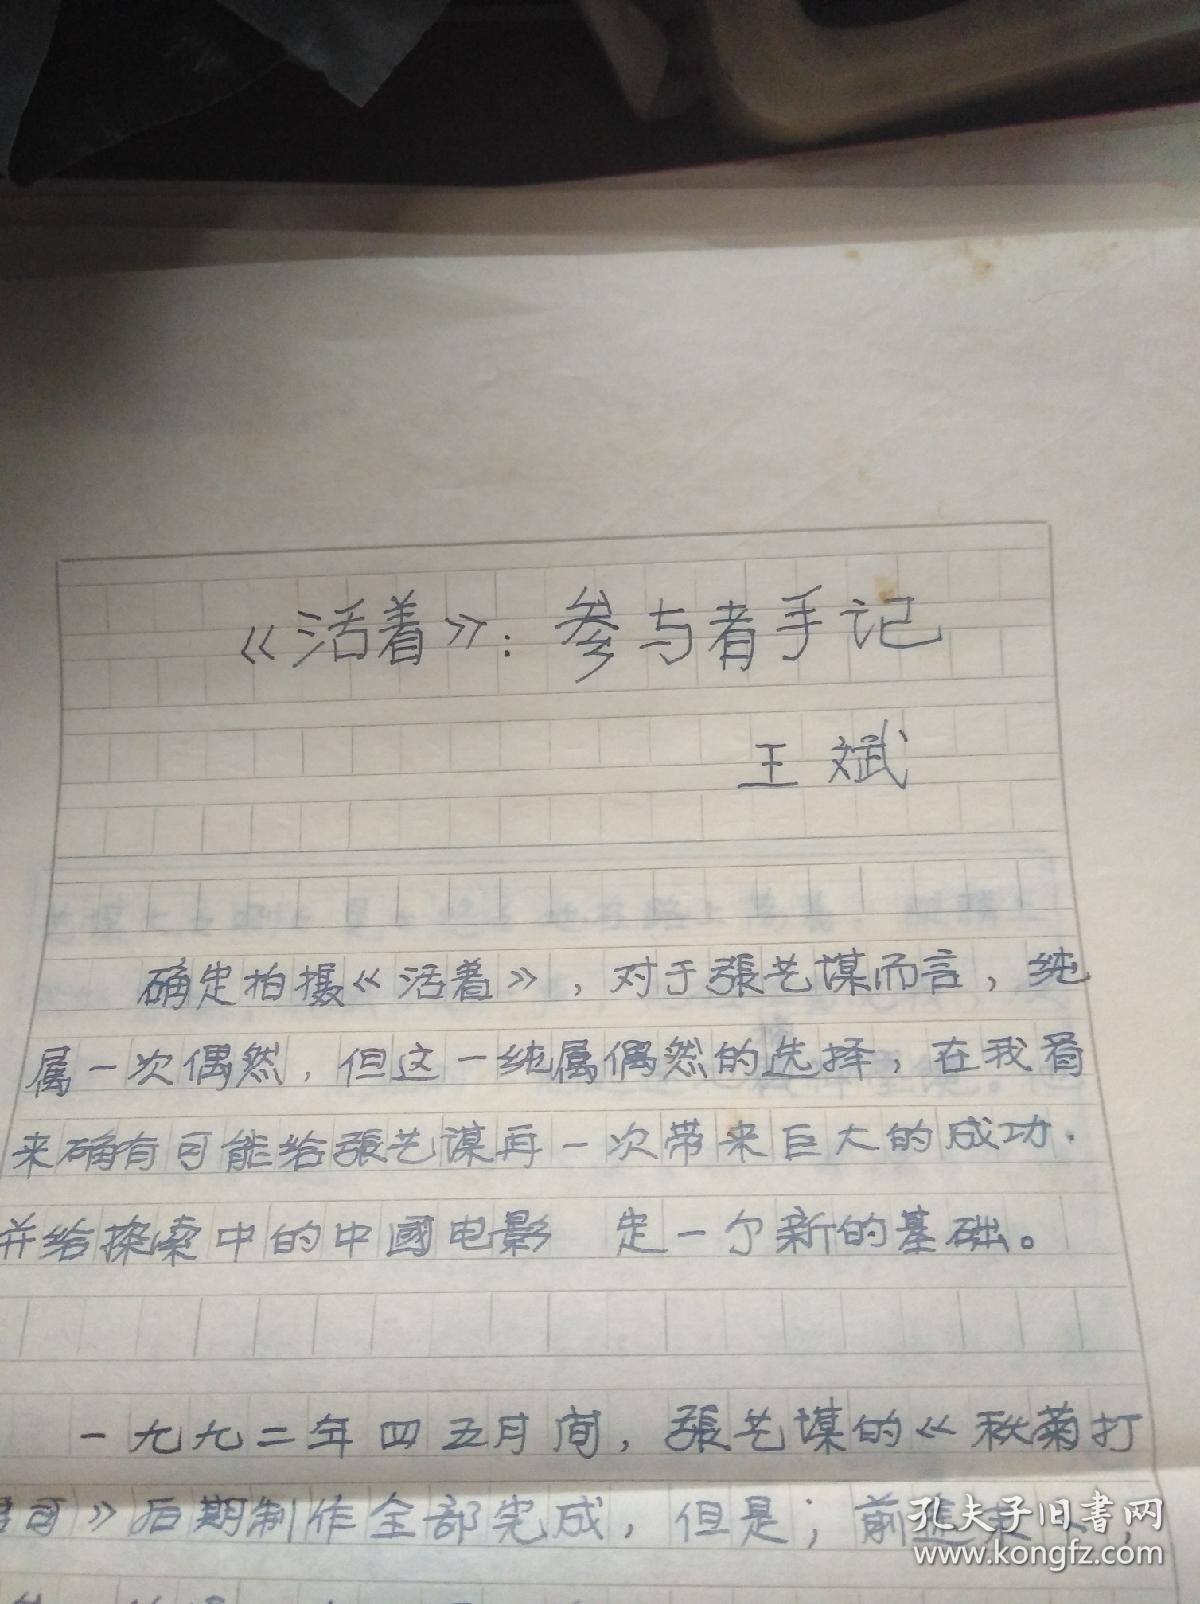 《活着》：参与者手记
王斌
确定拍摄《活着》，对于張艺谋而言，纯
属一次偶然，但这一纯属偶然的选择，在我看
来确有可能给張艺谋再一次带来巨大的成功．
并给探索中的中國电影 定一个新的基础。
一九九二年四五月间，張艺谋的《秋菊打
官司》后期制作全部完成，但是；前
孔夫子旧书网
www.kongfz.com